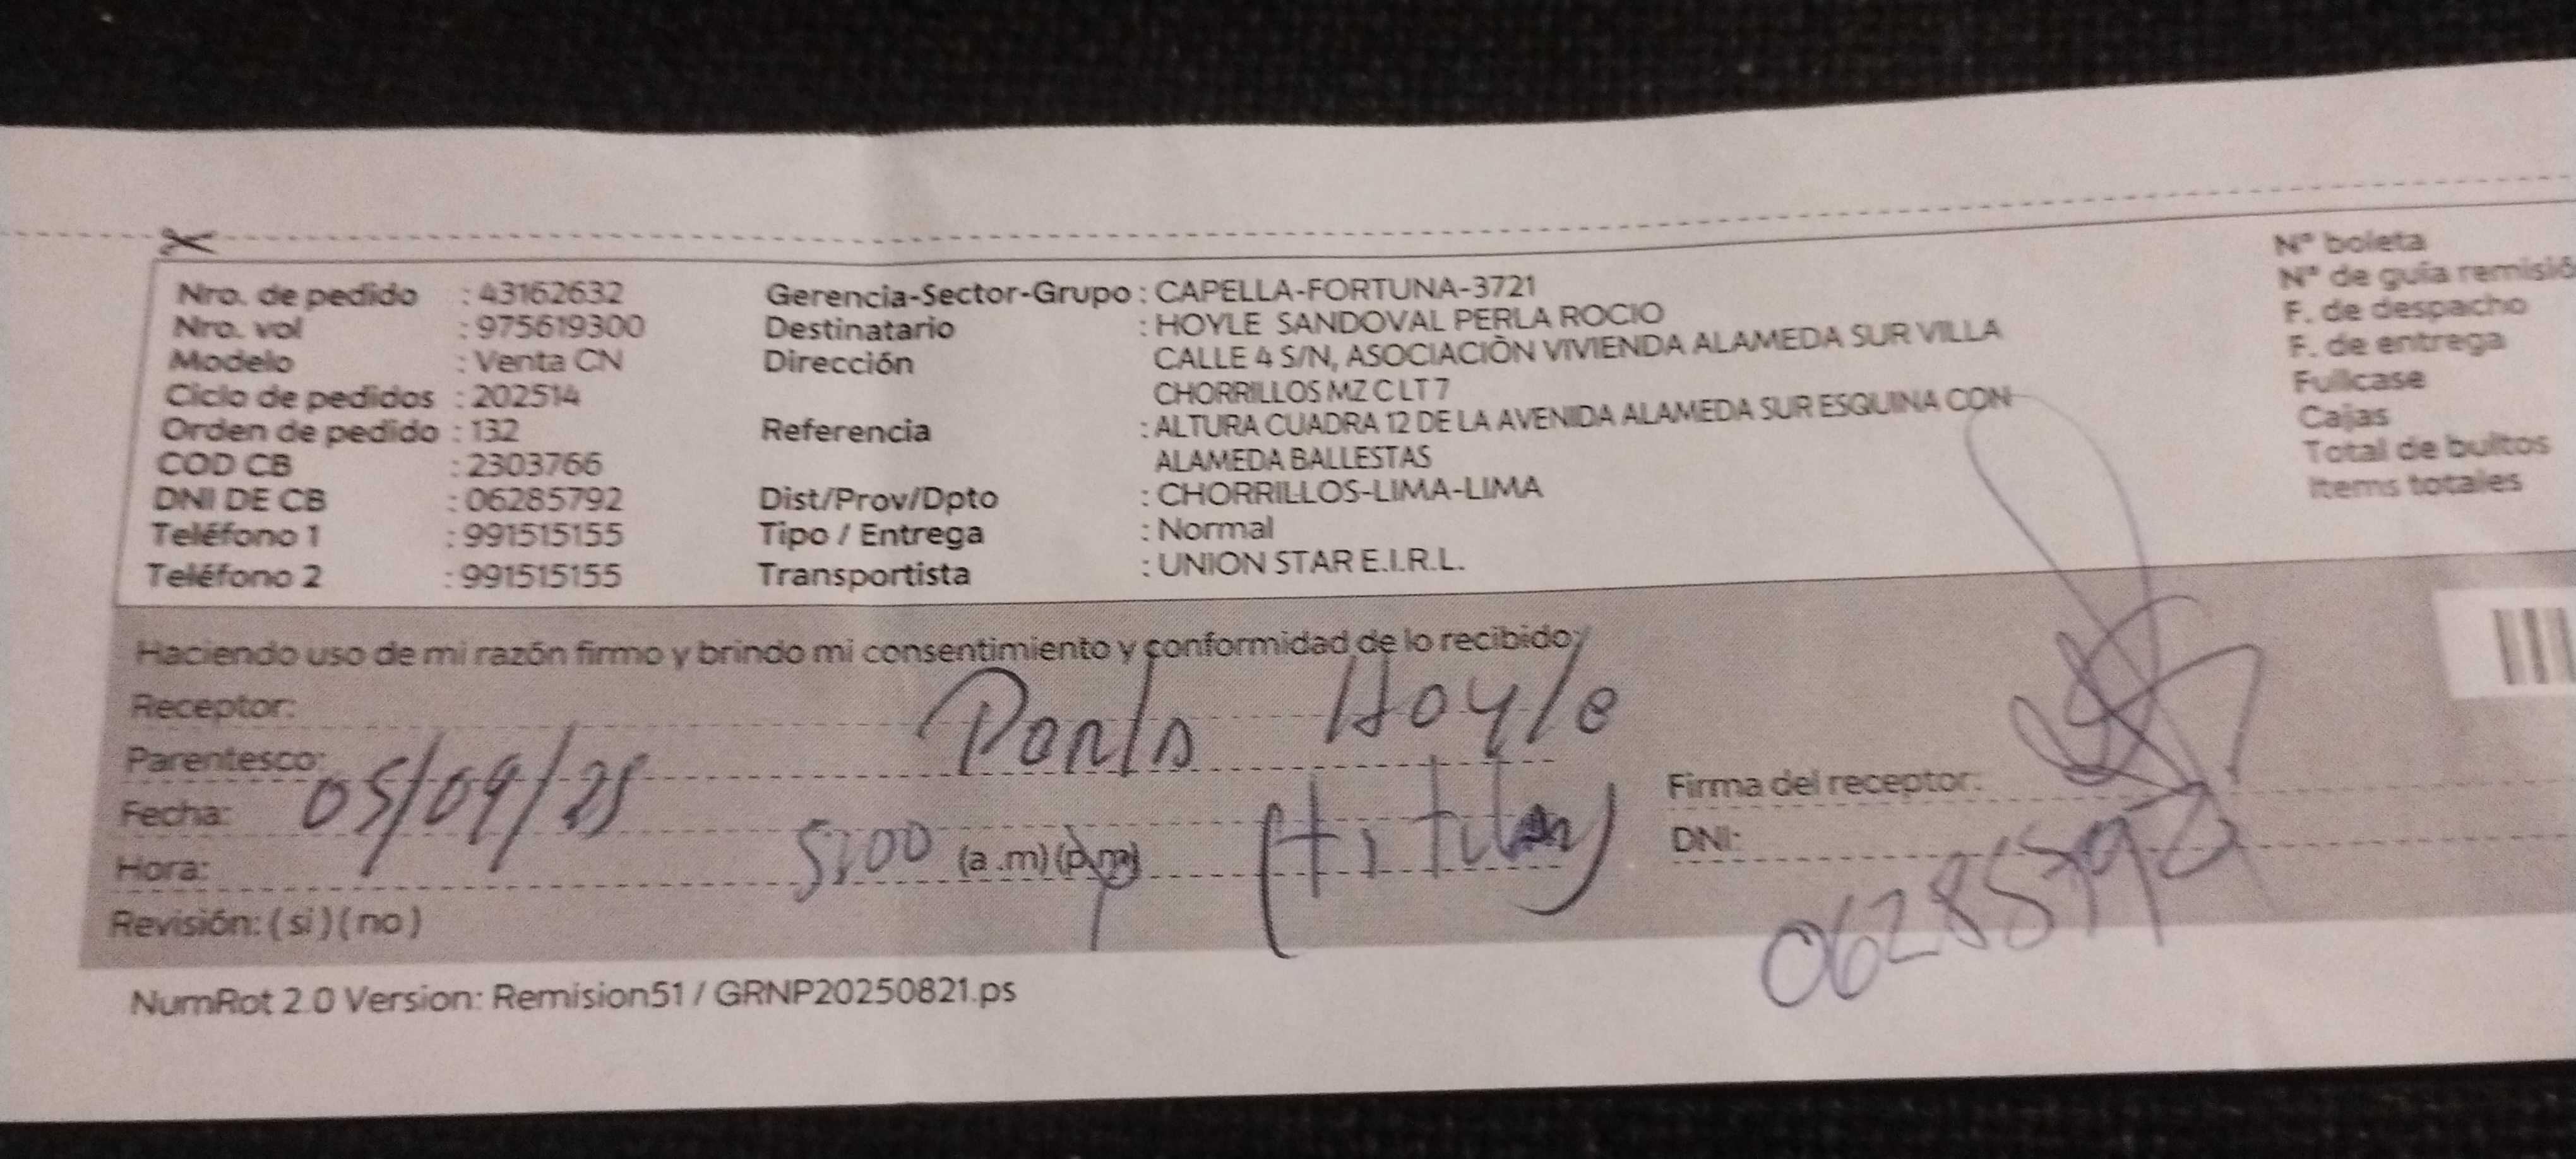 Nro. de pedido : 43162632 Gerencia-Sector-Grupo : CAPELLA-FORTUNA-3721 N° boleta
Nro. vol : 975619300 Destinatario : HOYLE SANDOVAL PERLA ROCIO N° de guía remisió
Modelo : Venta CN Dirección CALLE 4 S/N, ASOCIACIÒN VIVIENDA ALAMEDA SUR VILLA F. de despacho
Ciclo de pedidos : 202514 CHORRILLOS MZ C LT 7 F. de entrega
Orden de pedido : 132 Referencia : ALTURA CUADRA 12 DE LA AVENIDA ALAMEDA SUR ESQUINA CON Fullcase
COD CB : 2303766 ALAMEDA BALLESTAS Cajas
DNI DE CB : 06285792 Dist/Prov/Dpto : CHORRILLOS-LIMA-LIMA Total de bultos
Teléfono 1 : 991515155 Tipo / Entrega : Normal Items totales
Teléfono 2 : 991515155 Transportista : UNION STAR E.I.R.L.
Haciendo uso de mi razón firmo y brindo mi consentimiento y conformidad de lo recibido:
Receptor: Perla Hoyle
Parentesco: (titular)
Fecha: 05/09/25 Firma del receptor:
Hora: 5:00 (a.m) (p.m) DNI: 06285792
Revisión: ( si ) ( no )
NumRot 2.0 Version: Remision51 / GRNP20250821.ps